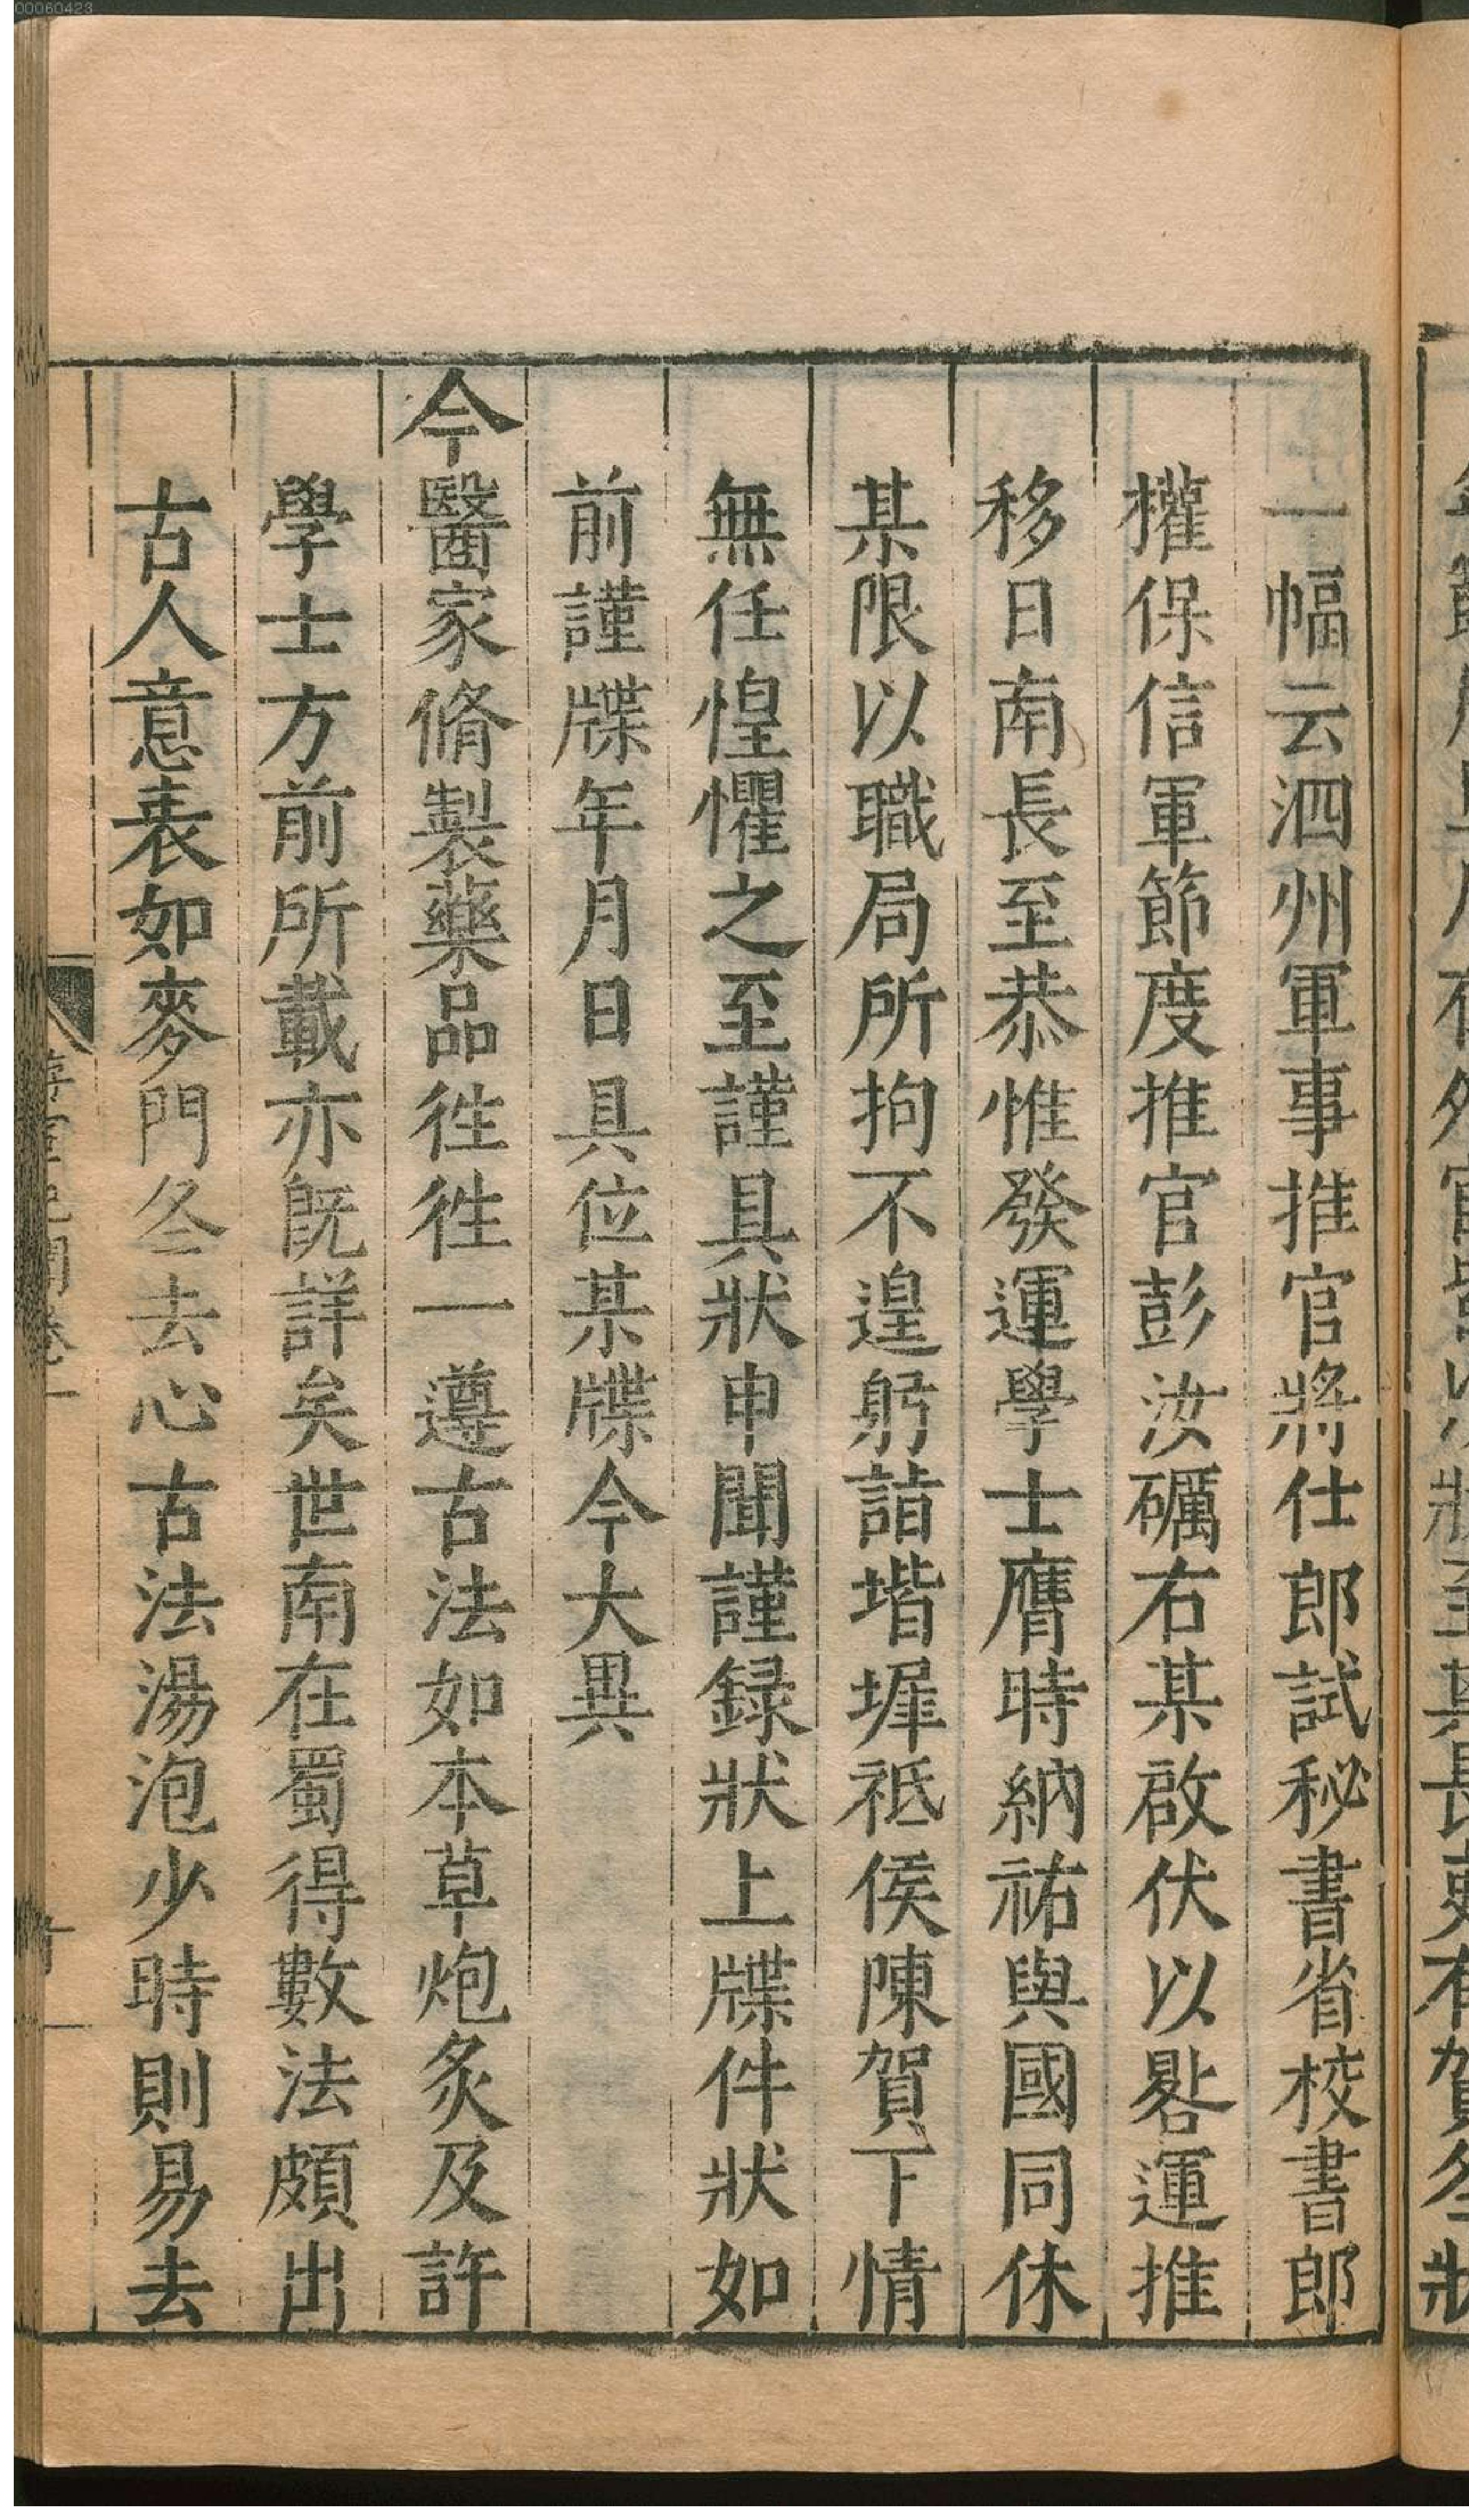 00060423
一幅云泗州軍事推官將仕郎試秘書省校書郎
權保信軍節度推官彭汝礪右某啟伏以晷運推
移日南長至恭惟發運學士膺時納祐與國同休
某限以職局所拘不遑躬詣堦墀祗候陳賀下情
無任惶懼之至謹具狀申聞謹録狀上牒件狀如
前謹牒年月日具位某牒今大異
今醫家脩製藥品徃徃一一遵古法如本草炮炙及許
學士方前所載亦既詳矣世南在蜀得數法頗出
古人意表如麥門冬去心古法湯泡少時則易去